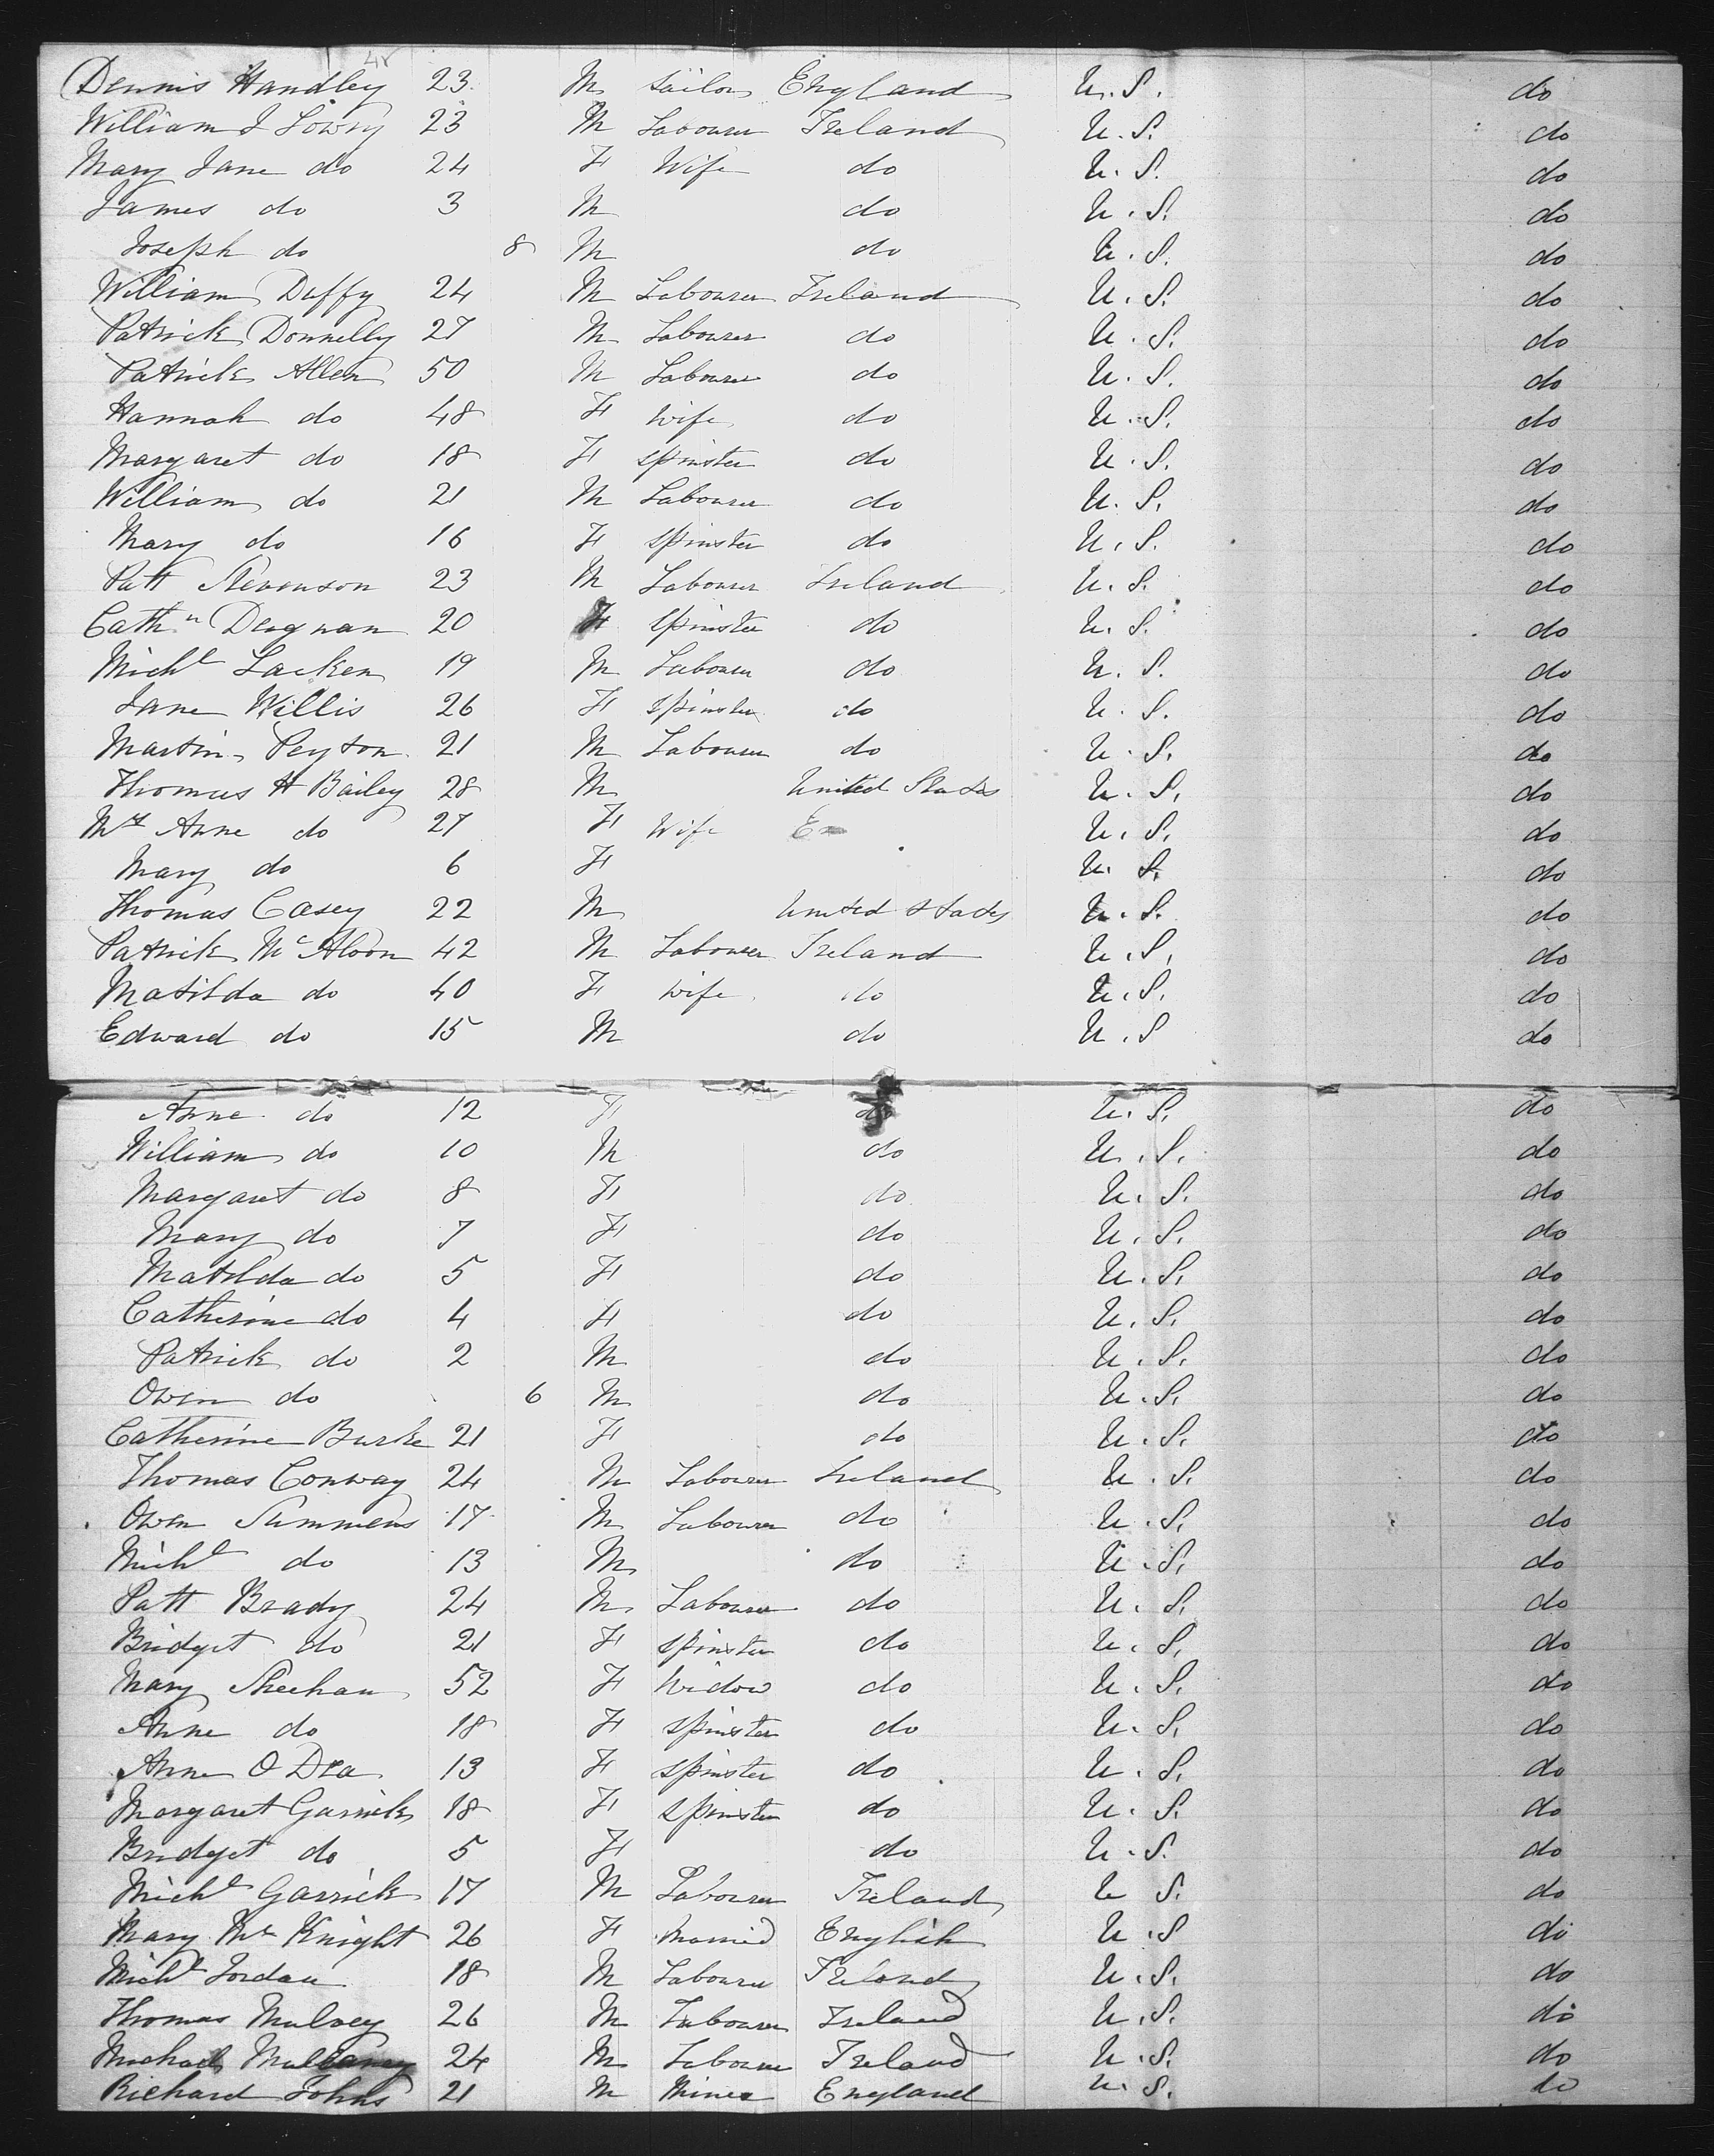 48
Dennis Handley 23 M Sailor England U.S. do
William J Lowry 23 M Labourer Ireland U.S. do
Mary Jane do 24 F Wife do U.S. do
James do 3 M do U.S. do
Joseph do 8 M do U.S. do
William Duffy 24 M Labourer Ireland U.S. do
Patrick Donnelly 27 M Labourer do U.S. do
Patrick Allen 50 M Labourer do U.S. do
Hannah do 48 F Wife do U.S. do
Margaret do 18 F Spinster do U.S. do
William do 21 M Labourer do U.S. do
Mary do 16 F Spinster do U.S. do
Patt Stevenson 23 M Labourer Ireland U.S. do
Cathn Degnan 20 F Spinster do U.S. do
Michl Lacken 19 M Labourer do U.S. do
Jane Willis 26 F Spinster do U.S. do
Martin Peyton 21 M Labourer do U.S. do
Thomas H Bailey 28 M United States U.S. do
Mrs Anne do 27 F Wife U.S. do
Mary do 6 F U.S. do
Thomas Casey 22 M United States U.S. do
Patrick McAloon 42 M Labourer Ireland U.S. do
Matilda do 40 F Wife do U.S. do
Edward do 15 M do U.S do
Anne do 12 F do U.S. do
William do 10 M do U.S. do
Margaret do 8 F do U.S. do
Mary do 7 F do U.S. do
Matilda do 5 F do U.S. do
Catherine do 4 F do U.S. do
Patrick do 2 M do U.S. do
Owen do 6 M do U.S. do
Catherine Burke 21 F do U.S. do
Thomas Conway 24 M Labourer Ireland U.S. do
Owen Summens 17 M Labourer do U.S. do
Michl do 13 M do U.S. do
Patt Brady 24 M Labourer do U.S. do
Bridget do 21 F Spinster do U.S. do
Mary Sheehan 52 F Widow do U.S. do
Anne do 18 F Spinster do U.S. do
Anne O Dea 13 F Spinster do U.S. do
Margaret Garrick 18 F Spinster do U.S. do
Bridget do 5 F do U.S. do
Michl Garrick 17 M Labourer Ireland U S. do
Mary McKnight 26 F Married English U.S do
Michl Jordan 18 M Labourer Ireland U.S. do
Thomas Mulvey 26 M Labourer Ireland U.S. do
Michael 24 M Labourer Ireland U.S. do
Richard Johns 21 M Miner England U.S. do